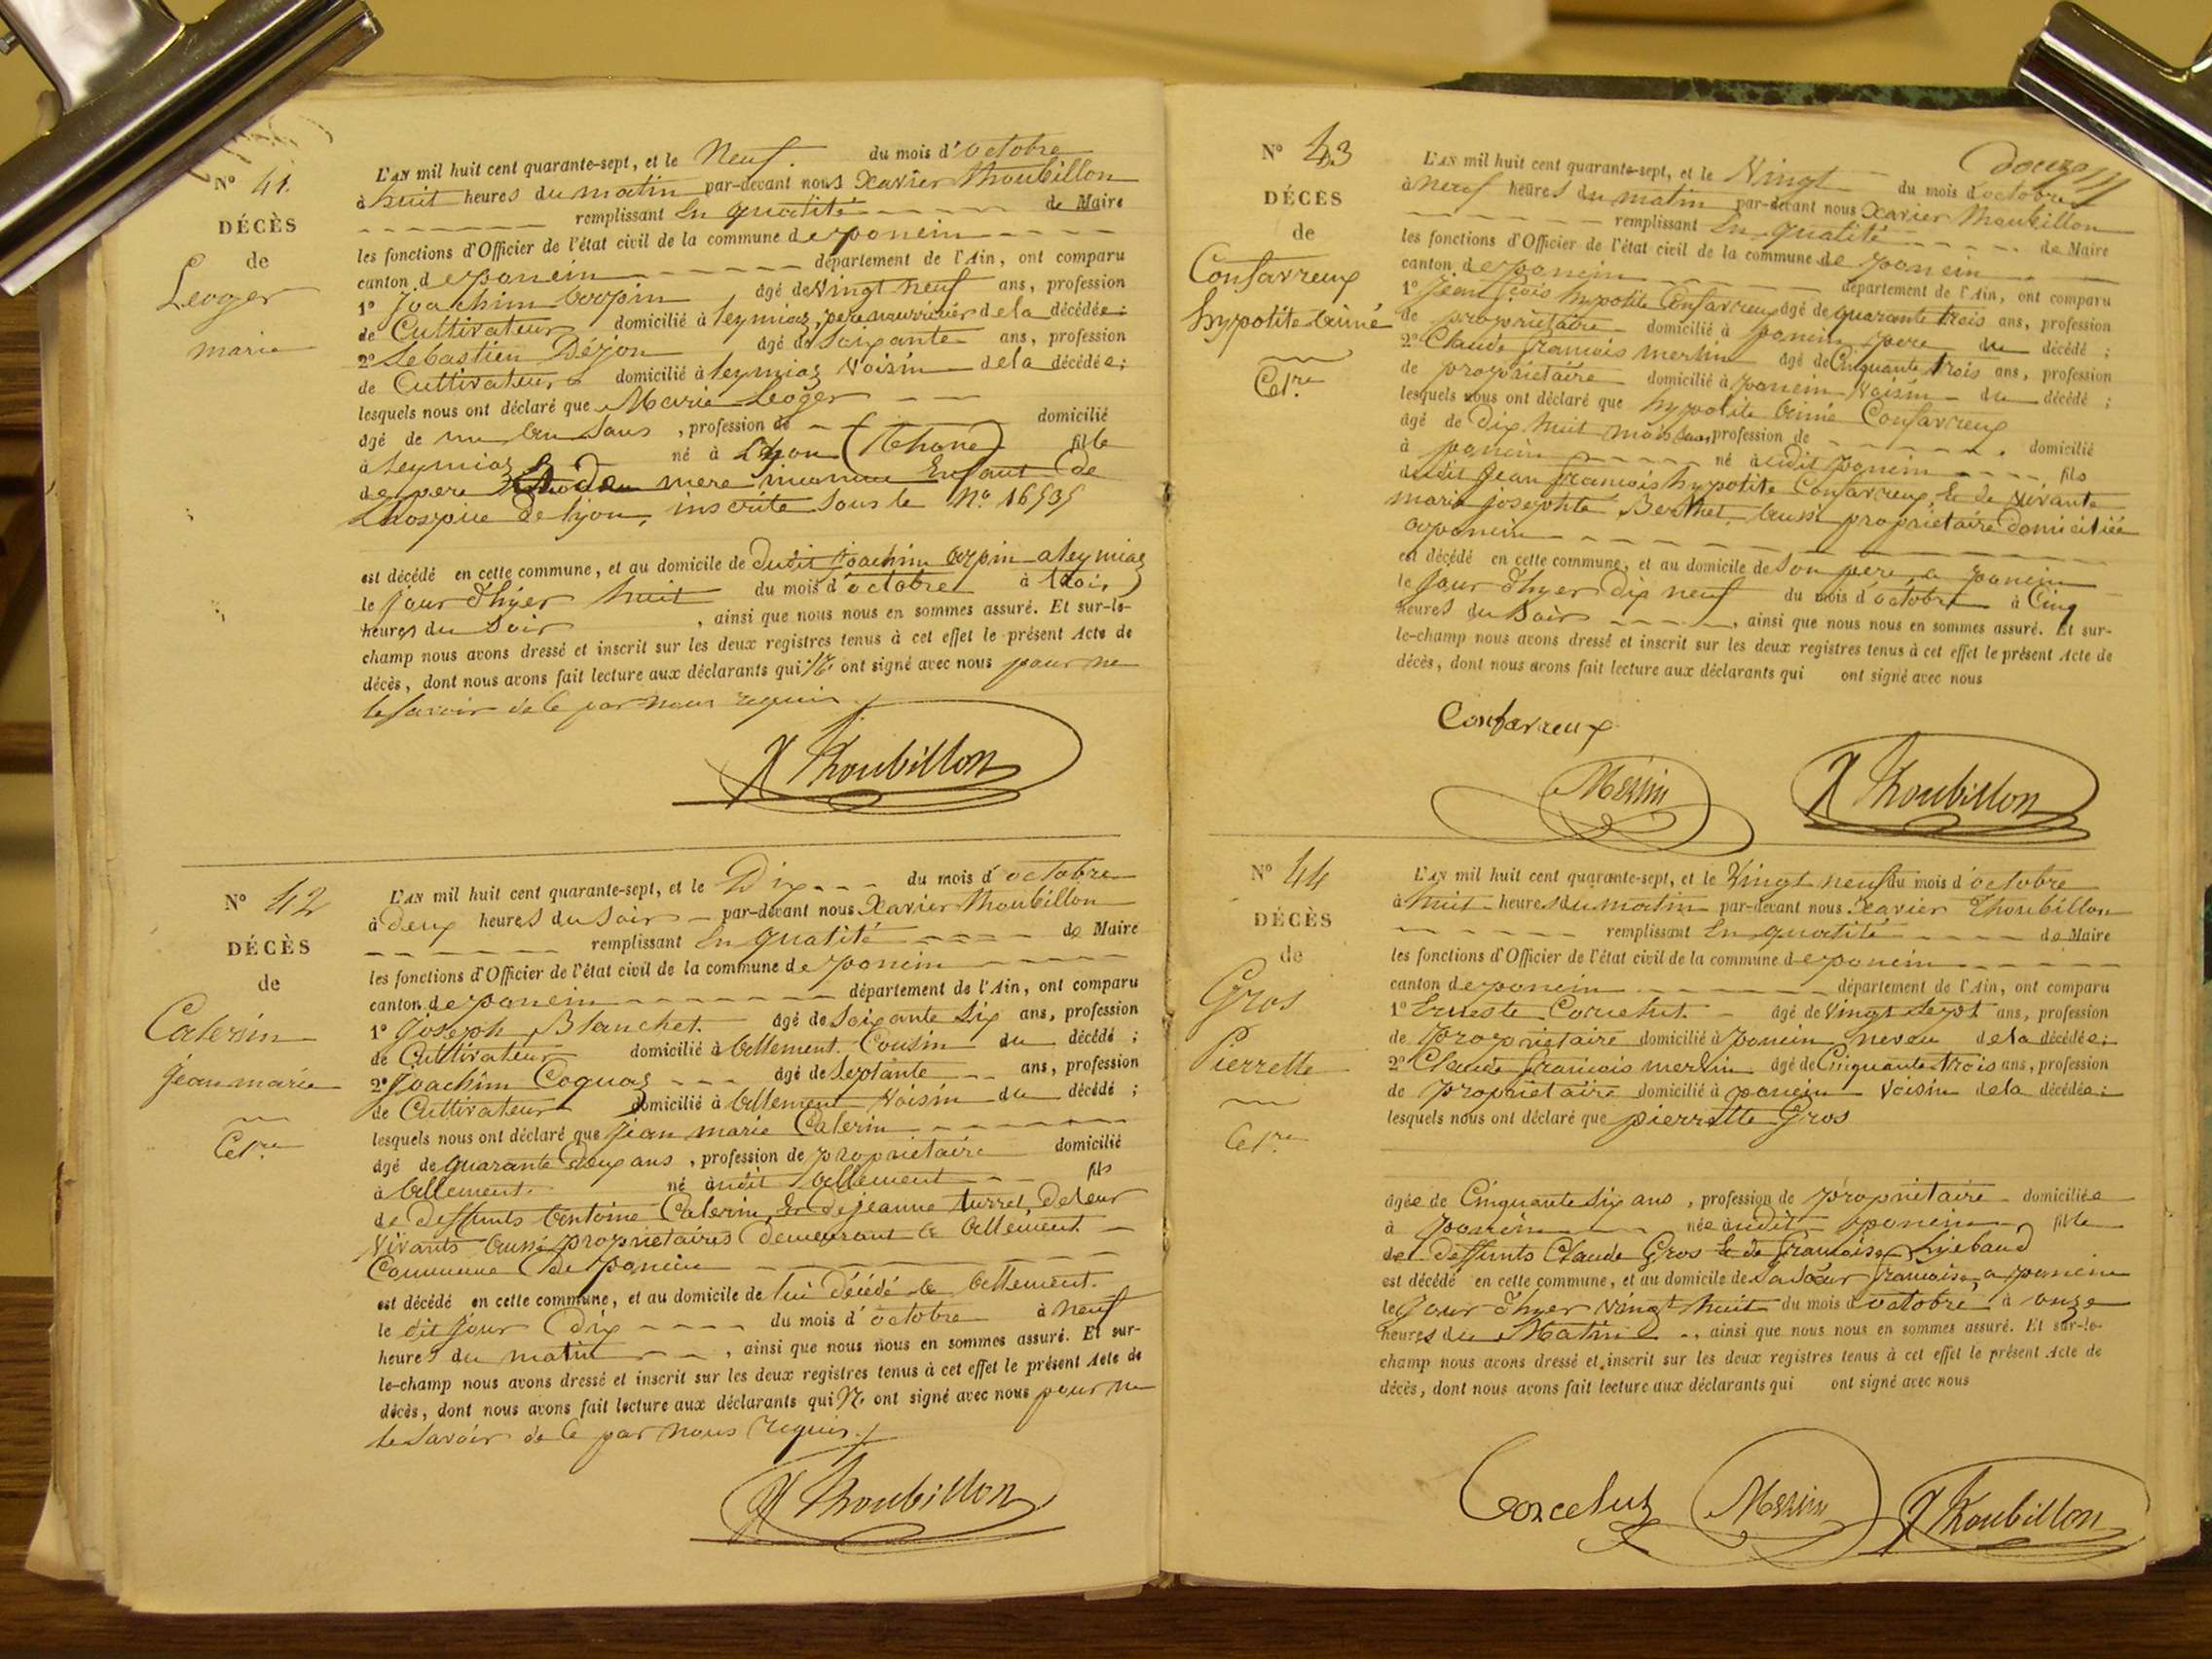 N° 41.
DÉCÈS
de
Leoger
marie
L'AN mil huit cent quarante-sept, et le Neuf. du mois d'octobre
à huit heures du matin par-devant nous Xavier Thoubillon
remplissant en qualité de Maire
les fonctions d'Officier de l'état civil de la commune de poncin
canton de poncin département de l'Ain, ont comparu
1° Joachim âgé de Vingt neuf ans, profession
de Cultivateur domicilié à leymiaz, pere nourricier de la décédée;
2° Sebastien Déjon âgé de Soixante ans, profession
de Cultivateur domicilié à leymiaz Voisin de la décédée;
lesquels nous ont déclaré que Marie Leoger
âgé de un an , profession de domicilié
à leymiaz né à Lyon (Rhone) fille
de pere mere inconnu Enfant de
Lhospice De lyon, inscrite Sous le N° 16535
est décédé en cette commune, et au domicile de dudit Joachim a leymiaz
le jour d'hyer huit du mois d'octobre à
heures du Soir , ainsi que nous nous en sommes assuré. Et sur-le-
champ nous avons dressé et inscrit sur les deux registres tenus à cet effet le présent Acte de
décès, dont nous avons fait lecture aux déclarants qui N' ont signé avec nous pour ne
le savoir de ce par nous requis
X Thoubillon
N° 42
DÉCÈS
de
Calerin
jean marie
Cel.re
L'AN mil huit cent quarante-sept, et le Dix du mois d'octobre
à Deux heures du Soir par-devant nous Xavier Thoubillon
remplissant en qualité de Maire
les fonctions d'Officier de l'état civil de la commune de poncin
canton de poncin département de l'Ain, ont comparu
1° joseph Blanchet. âgé de Soixante Six ans, profession
de Cultivateur domicilié à allement. Cousin du décédé ;
2° Joachim Coquaz âgé de Septante ans, profession
de Cultivateur domicilié à allement Voisin du décédé ;
lesquels nous ont déclaré que jean marie Calerin
âgé de quarante deux ans , profession de propriétaire domicilié
à allement. né audit allement fils
de Deffunts antoine Calerin, Et de jeanne turrel, De leur
Vivants aussi propriétaires demeurant a allement
Commune de poncin
est décédé en cette commune, et au domicile de lui décédé a allement.
le dit jour Dix du mois d'octobre à neuf
heures du matin , ainsi que nous nous en sommes assuré. Et sur-
le-champ nous avons dressé et inscrit sur les deux registres tenus à cet effet le présent Acte de
décès, dont nous avons fait lecture aux déclarants qui N' ont signé avec nous pour ne
le Savoir de ce par nous requis
X Thoubillon
Douze
N° 43
DÉCÈS
de
Confavreux
hypolite aimé
Cel.re
L'AN mil huit cent quarante-sept, et le Vingt du mois d'octobre
à neuf heures du matin par-devant nous Xavier Thoubillon
remplissant en qualité de Maire
les fonctions d'Officier de l'état civil de la commune de poncin
canton de poncin département de l'Ain, ont comparu
1° Jean hypolite Confavreux âgé de quarante trois ans, profession
de propriétaire domicilié à poncin pere du décédé ;
2° Claude francois merlin âgé de Cinquante trois ans, profession
de propriétaire domicilié à poncin Voisin du décédé ;
lesquels nous ont déclaré que hypolite aimé Confavreux
âgé de Dix huit mois sans profession de domicilié
à poncin né audit poncin fils
dudit Jean francois hypolite Confavreux, Et de vivante
marie josephte Berthet, aussi propriétaire domiciliée
a poncin
est décédé en cette commune, et au domicile de Son pere a poncin
le jour d'hyer Dix neuf du mois d'octobre à Cinq
heures du Soir , ainsi que nous nous en sommes assuré. Et sur-
le-champ nous avons dressé et inscrit sur les deux registres tenus à cet effet le présent Acte de
décès, dont nous avons fait lecture aux déclarants qui ont signé avec nous
Confavreux
Merlin X Thoubillon
N° 44
DÉCÈS
de
Gros
Pierrette
Cel.re
L'AN mil huit cent quarante-sept, et le Vingt neuf du mois d'octobre
à huit heures du matin par-devant nous Xavier Thoubillon
remplissant en qualité de Maire
les fonctions d'Officier de l'état civil de la commune de poncin
canton de poncin département de l'Ain, ont comparu
1° Erneste Corcelut. âgé de Vingt Sept ans, profession
de propriétaire domicilié à poncin neveu de la décédée;
2° Claude francois merlin âgé de Cinquante trois ans, profession
de propriétaire domicilié à poncin Voisin de la décédée;
lesquels nous ont déclaré que pierrette Gros
âgée de Cinquante Six ans , profession de propriétaire domiciliée
à poncin née audit poncin, fille
de Deffunts Claude Gros Et de francoise
est décédé en cette commune, et au domicile de Sa Sœur francoise, a poncin
le jour d'hyer Vingt huit du mois d'octobre à onze
heures du Matin , ainsi que nous nous en sommes assuré. Et sur-le-
champ nous avons dressé et inscrit sur les deux registres tenus à cet effet le présent Acte de
décès, dont nous avons fait lecture aux déclarants qui ont signé avec nous
Corcelut Merlin X Thoubillon